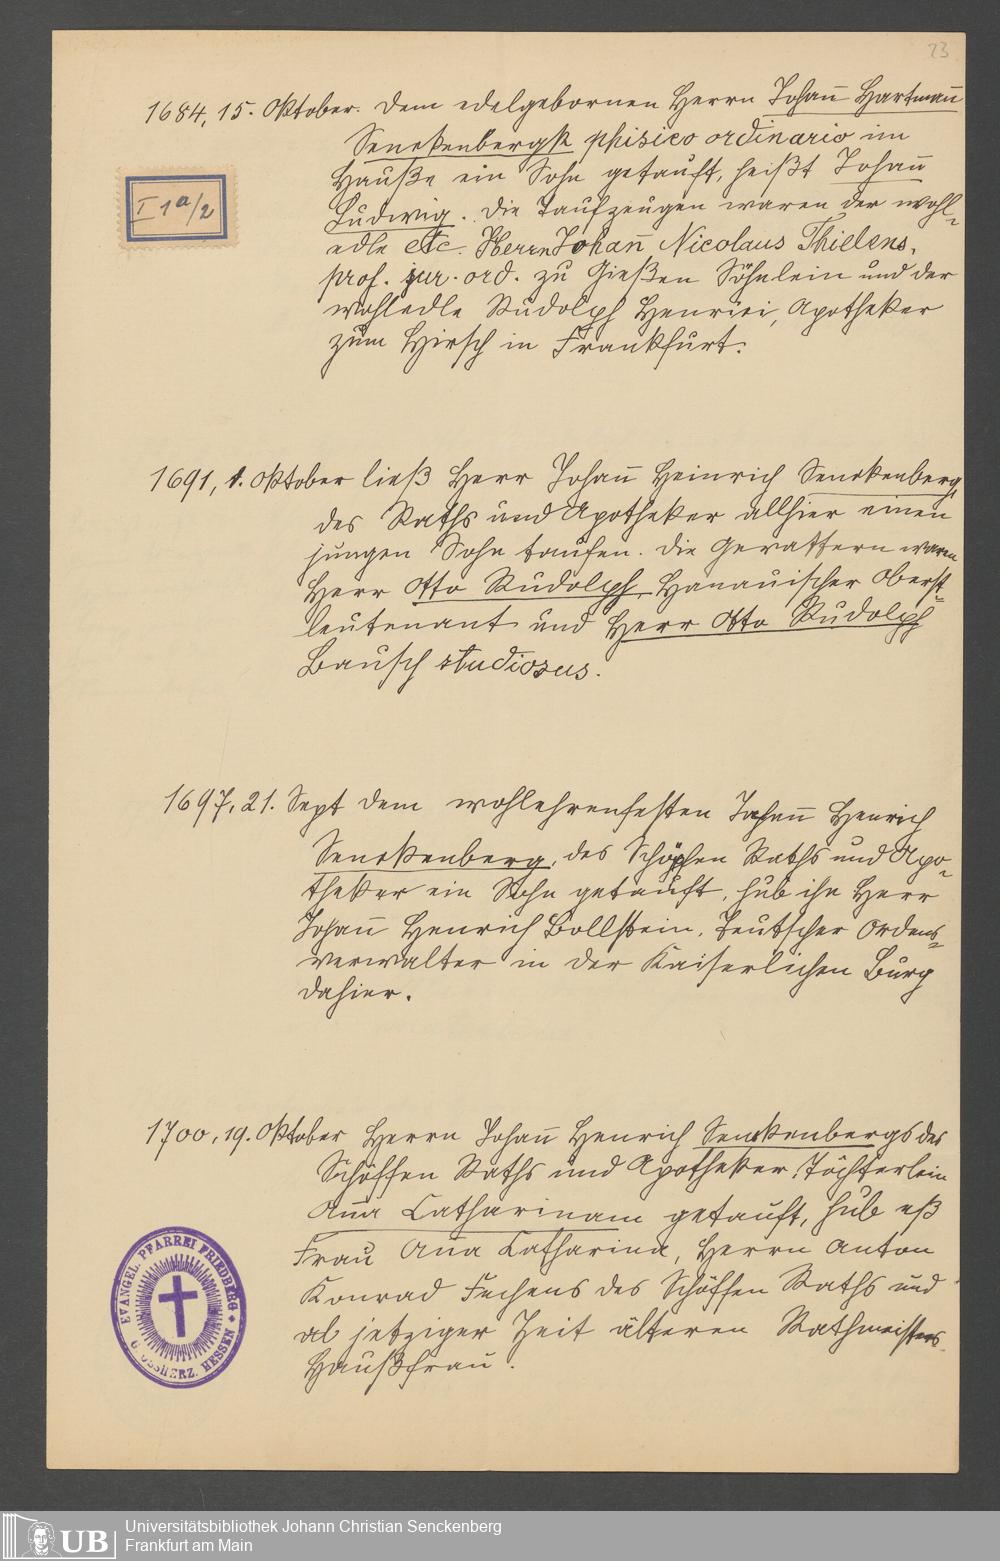 23
1684, 15. Oktober. Dem edelgebornen Herrn Johan̅ Hartman̅
Senckenbergk phisico ordinario im
Hauße ein Sohn getauft, heißt Johan̅
Ludwig. Die Taufzeugen waren der wohl-
edle etc. Herrn Johan̅ Nicolaus Thielens,
prof. jur. ord. zu Gießen Söhnlein und der
wohledle Rudolph Henrici, Apotheker
zum Hirsch in Frankfurt.
I 1a/2
1691, 1. Oktober ließ Herr Johan̅ Heinrich Senckenberg,
des Raths und Apotheker allhier einen
jungen Sohn taufen. Die Gevattern waren
Herr Otto Rudolph, Hanauischer Oberst-
leutenant und Herr Otto Rudolph
Bausch studiosus.
1697, 21. Sept dem wohlehrenfesten Johan̅ Henrich
Senckenberg, des Schöpfen Raths und Apo-
theker ein Sohn getauft, hub ihn Herr
Johan̅ Henrich Bollstein, Teutscher Ordens-
verwalter in der Kaiserlichen Burg
dahier.
1700, 19. Oktober Herrn Johan̅ Henrich Senckenbergs des
Schöffen Raths und Apotheker, Töchterlein
An̅a Catharinam getauft, hub eß
Frau An̅a Catharina, Herrn Anton
Konrad Fechens des Schöffen Raths und
ab jetziger Zeit älteren Rathmeisters
Haußfrau.
EVANGEL. PFARREI FRIEDBERG
GROSSHERZ. HESSEN
UB
Universitätsbibliothek Johann Christian Senckenberg
Frankfurt am Main